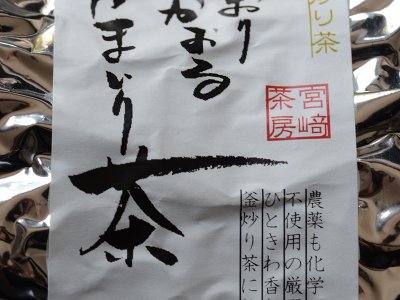 炒り茶
おり
かおる
かまいり
茶
宮﨑
茶房
農薬も化学
不使用の厳
ひときわ香
釜炒り茶に